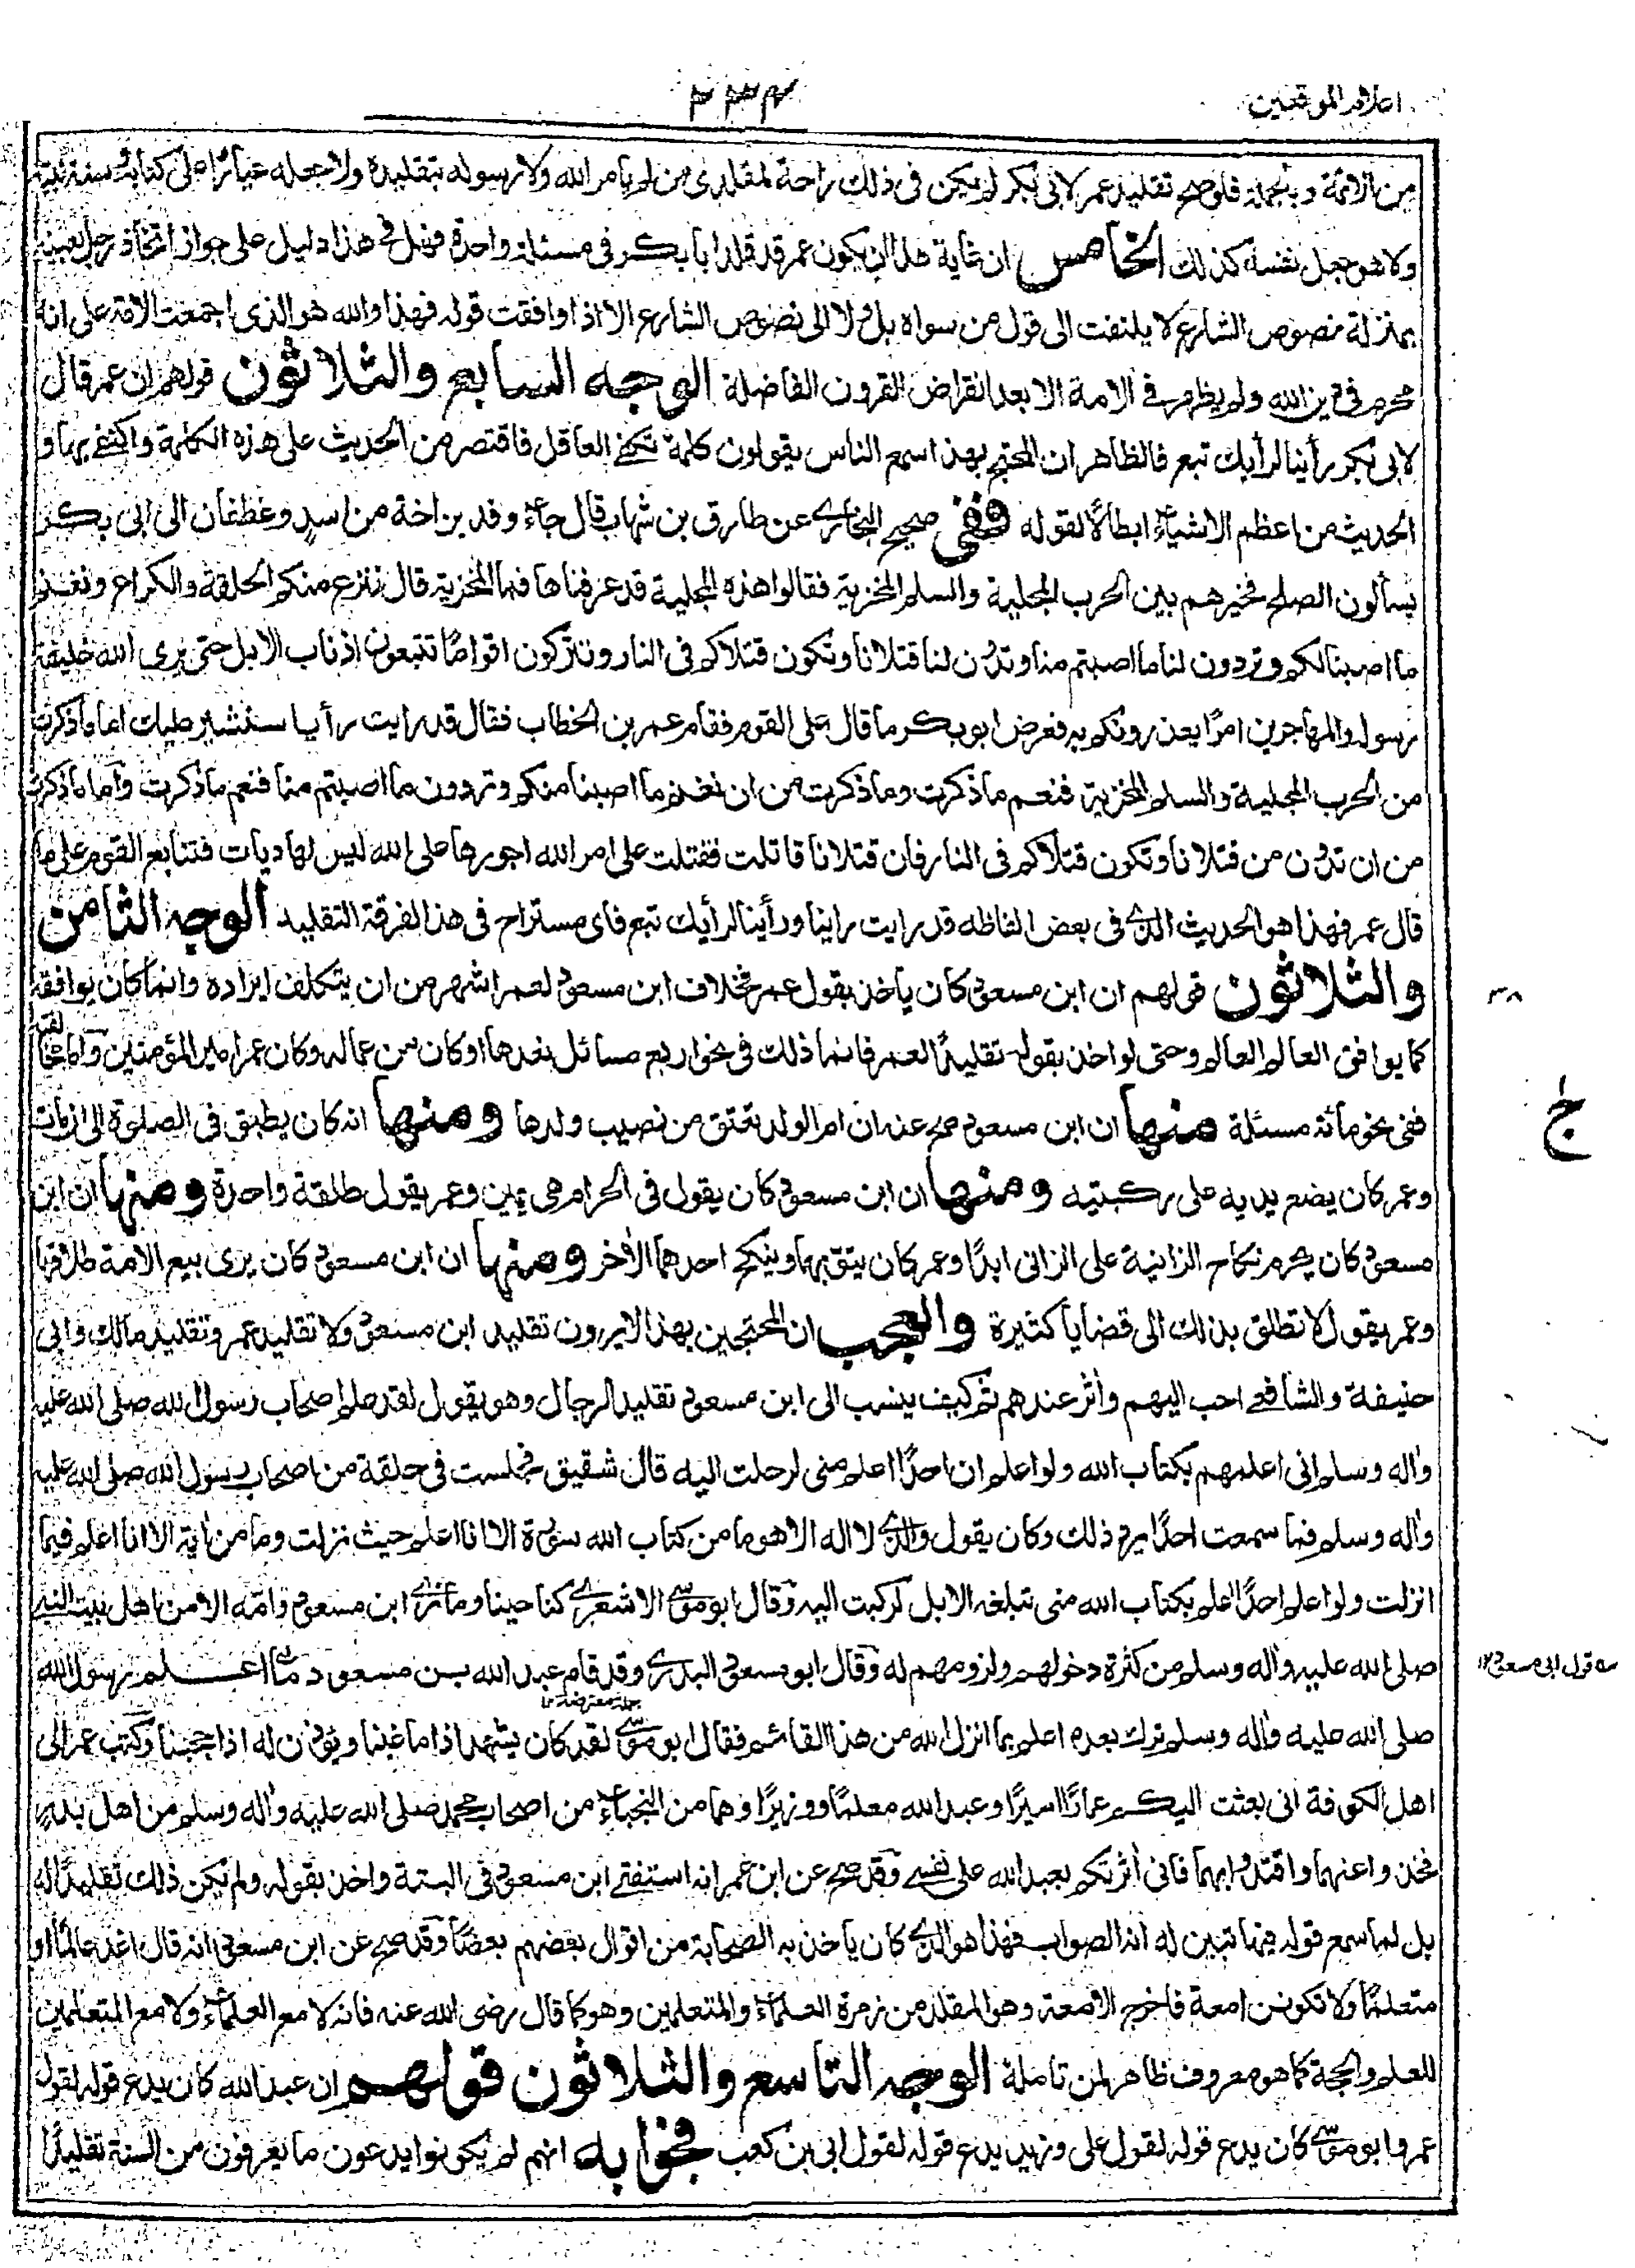 اعلام الموقعين
٣٣٤
من الائمة وبالجملة فلو صح تقليد عمر لابى بكر لم يكن فى ذلك راحة لمقلدى من لم يامر الله ولا رسوله بتقليده ولا جعله عيارا على كتابه وسنة نبيه
ولا هو جعل نفسه كذلك الخامس ان غاية هذا ان يكون عمر قد قلد ابا بكر فى مسئلة واحدة فهل فى هذا دليل على جواز اتخاذ رجل بعينه
بمنزلة نصوص الشارع لا يلتفت الى قول من سواه بل ولا الى نصوص الشارع الا اذا وافقت قوله فهذا والله هو الذى اجمعت الامة على انه
محرم فى دين الله ولم يظهر فى الامة الا بعد انقراض القرون الفاضلة الوجه السابع والثلاثون قولهم ان عمر قال
لابى بكر رأينا لرأيك تبع فالظاهر ان المحتج بهذا سمع الناس يقولون كلمة تكفى العاقل فاقتصر من الحديث على هذه الكلمة واكتفى بها و
الحديث من اعظم الاشياء ابطالا لقوله ففى صحيح البخارى عن طارق بن شهاب قال جاء وفد بزاخة من اسد وغطفان الى ابى بكر
يسألون الصلح فخيرهم بين الحرب المجلية والسلم المخزية فقالوا هذه المجلية قد عرفناها فما المخزية قال ننزع منكم الحلقة والكراع ونغنم
ما اصبنا لكم وتردون لنا ما اصبتم منا وتدون لنا قتلانا وتكون قتلاكم فى النار وتتركون اقواما تتبعون اذناب الابل حتى يرى الله خليفة
رسوله والمهاجرين امرا يعذرونكم به فعرض ابو بكر ما قال على القوم فقام عمر بن الخطاب فقال قد رايت رأيا سنشير عليك اما ما ذكرت
من الحرب المجلية والسلم المخزية فنعم ما ذكرت وما ذكرت من ان نغنم ما اصبنا منكم وتردون ما اصبتم منا فنعم ما ذكرت واما ما ذكرت
من ان تدون من قتلانا وتكون قتلاكم فى النار فان قتلانا قاتلت فقتلت على امر الله اجورها على الله ليس لها ديات فتتابع القوم على ما
قال عمر فهذا هو الحديث الذى فى بعض الفاظه قد رايت راينا ورأينا لرأيك تبع فاى مستراح فى هذا لفرقة التقليد الوجه الثامن
والثلاثون قولهم ان ابن مسعود كان ياخذ بقول عمر فخلاف ابن مسعود لعمر اشهر من ان يتكلف ايراده وانما كان يوافقه
كما يوافق العالم العالم وحتى لو اخذ بقوله تقليدا لعمر فانما ذلك فى نحو اربع مسائل نعدها اذ كان من عماله وكان عمر امير المؤمنين واما مخالفته
ففى نحو مائة مسئلة منها ان ابن مسعود صح عنه ان ام الولد تعتق من نصيب ولدها ومنها انه كان يطبق فى الصلوة الى ان مات
وعمر كان يضع يديه على ركبتيه ومنها ان ابن مسعود كان يقول فى الحرام هى يمين وعمر يقول طلقة واحدة ومنها ان ابن
مسعود كان يحرم نكاح الزانية على الزانى ابدا وعمر كان يتوبهما وينكح احدهما الاخر ومنها ان ابن مسعود كان يرى بيع الامة طلاقها
وعمر يقول لا تطلق بذلك الى قضايا كثيرة والعجب ان المحتجين بهذا لا يرون تقليد ابن مسعود ولا تقليد عمر وتقليد مالك وابى
حنيفة والشافعى احب اليهم واثر عندهم ثم كيف ينسب الى ابن مسعود تقليد الرجال وهو يقول لقد علم اصحاب رسول الله صلى الله عليه
واله وسلم انى اعلمهم بكتاب الله ولو اعلم ان احدا اعلم منى لرحلت اليه قال شقيق فجلست فى حلقة من اصحاب رسول الله صلى الله عليه
واله وسلم فما سمعت احدا يرد ذلك وكان يقول والذى لا اله الا هو ما من كتاب الله سورة الا انا اعلم حيث نزلت وما من اية الا انا اعلم فيما
انزلت ولو اعلم احدا اعلم بكتاب الله منى تبلغه الابل لركبت اليه وقال ابو موسى الاشعرى كنا حينا وما نرى ابن مسعود وامه الا من اهل بيت النبى
صلى الله عليه واله وسلم من كثرة دخولهم ولزومهم له وقال ابو مسعود البدرى وقد قام عبد الله بن مسعود ما اعلم رسول الله
صلى الله عليه واله وسلم ترك بعده اعلم بما انزل الله من هذا القائم فقال ابو موسى لقد كان يشهد اذا ما غبنا ويؤذن له اذا حجبنا وكتب عمر الى
اهل الكوفة انى بعثت اليكم عمارا اميرا وعبد الله معلما ووزيرا وهما من النجباء من اصحاب محمد صلى الله عليه واله وسلم من اهل بدر
فخذوا عنهما واقتدوا بهما فانى اثرتكم بعبد الله على نفسى وقد صح عن ابن عمر انه استفتى ابن مسعود فى البتة واخذ بقوله ولم يكن ذلك تقليدا له
بل لما سمع قوله فيها تبين له انه الصواب فهذا هو الذى كان ياخذ به الصحابة من اقوال بعضهم بعضا وقد صح عن ابن مسعود انه قال اغد عالما او
متعلما ولا تكونن امعة فاخرج الامعة وهو المقلد من زمرة العلماء والمتعلمين وهو كما قال رضى الله عنه فانه لا مع العلماء ولا مع المتعلمين
للعلم والحجة كما هو معروف ظاهر لمن تامله الوجه التاسع والثلاثون قولهم ان عبد الله كان يدع قوله لقول
عمر وابو موسى كان يدع قوله لقول على وزيد يدع قوله لقول ابى بن كعب فجوابه انهم لم يكونوا يدعون ما يعرفون من السنة تقليدا
٣٨
ج
قول ابى مسعود ١٢